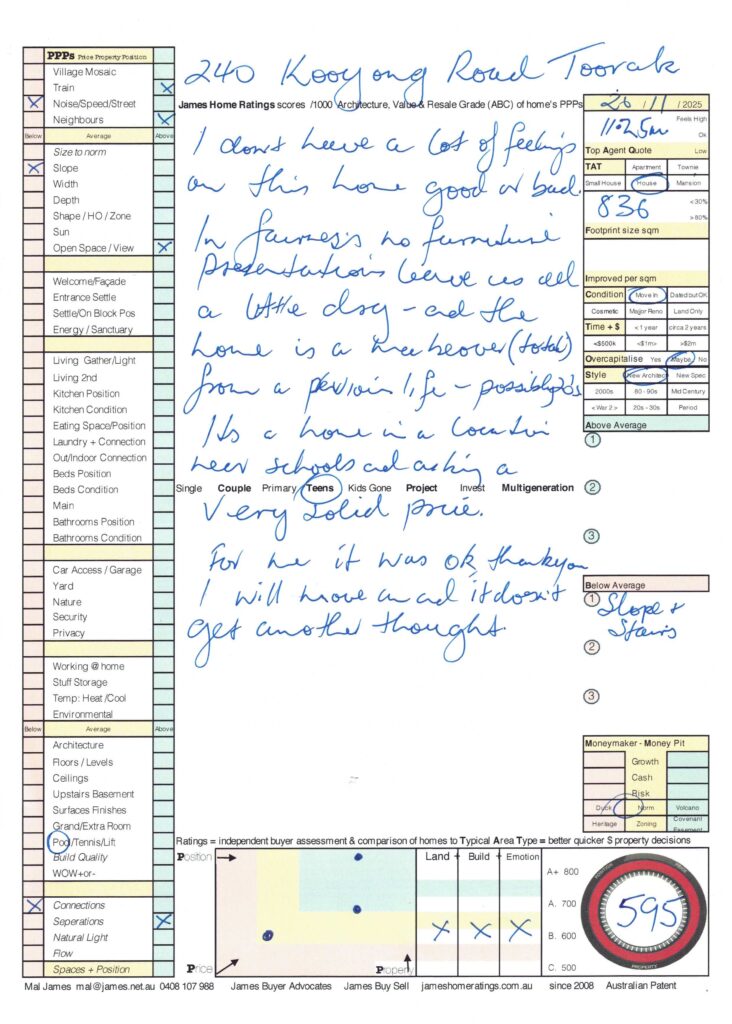 240 Kooyong Road Toorak
PPPs Price Property Position
Village Mosaic
Train
Noise/Speed/Street
Neighbours
Below Average Above
Size to norm
Slope
Width
Depth
Shape / HO / Zone
Sun
Open Space / View
Welcome/Façade
Entrance Settle
Settle/On Block Pos
Energy / Sanctuary
Living Gather/Light
Living 2nd
Kitchen Position
Kitchen Condition
Eating Space/Position
Laundry + Connection
Out/Indoor Connection
Beds Position
Beds Condition
Main
Bathrooms Position
Bathrooms Condition
Car Access / Garage
Yard
Nature
Security
Privacy
Working @ home
Stuff Storage
Temp: Heat /Cool
Environmental
Below Average Above
Architecture
Floors / Levels
Ceilings
Upstairs Basement
Surfaces Finishes
Grand/Extra Room
Pool/Tennis/Lift
Build Quality
WOW+or-
Connections
Seperations
Natural Light
Flow
Spaces + Position
James Home Ratings scores /1000 Architecture, Value & Resale Grade (ABC) of home's PPPs
I don't have a lot of feelings
on this home good or bad.
In fairness no furniture
presentations leave us all
a little dry - and the
home is a makeover (total)
from a previous life - possibly
Its a home in a location
near schools and asking a
Single Couple Primary Teens Kids Gone Project Invest Multigeneration
Very solid price.
For me it was ok thankyou
I will move on and it doesn't
get another thought.
26 / 11 / 2025
Feels High
11.25m
Ok
Top Agent Quote Low
TAT Apartment Townie
Small House House Mansion
836
<30%
>80%
Footprint size sqm
Improved per sqm
Condition Move in Dated but OK
Cosmetic Major Reno Land Only
Time + $ < 1 year circa 2 years
<$500k <$1m> >$2m
Overcapitalise Yes Maybe No
Style New Architect New Spec
2000s 80 - 90s Mid Century
< War 2 > 20s - 30s Period
Above Average
1
2
3
Below Average
1 Slope +
Stairs
2
3
Moneymaker - Money Pit
Growth
Cash
Risk
Duck Norm Volcano
Heritage Zoning Covenant
Easement
Ratings = independent buyer assessment & comparison of homes to Typical Area Type = better quicker $ property decisions
Position
Price
Property
Land + Build + Emotion
X X X
A+ 800
A. 700
B. 600
C. 500
POSITION PRICE
595
PROPERTY
Mal James mal@james.net.au 0408 107 988 James Buyer Advocates James Buy Sell jameshomeratings.com.au since 2008 Australian Patent